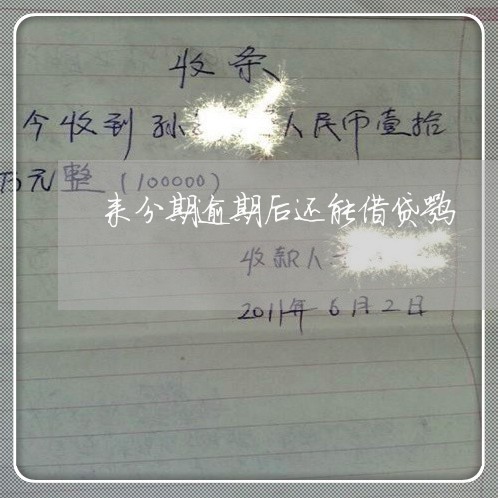 收条
今收到孙 人民币壹拾
万元整（100000）
来分期逾期后还能借贷鹗
收款人
2011年6月2日